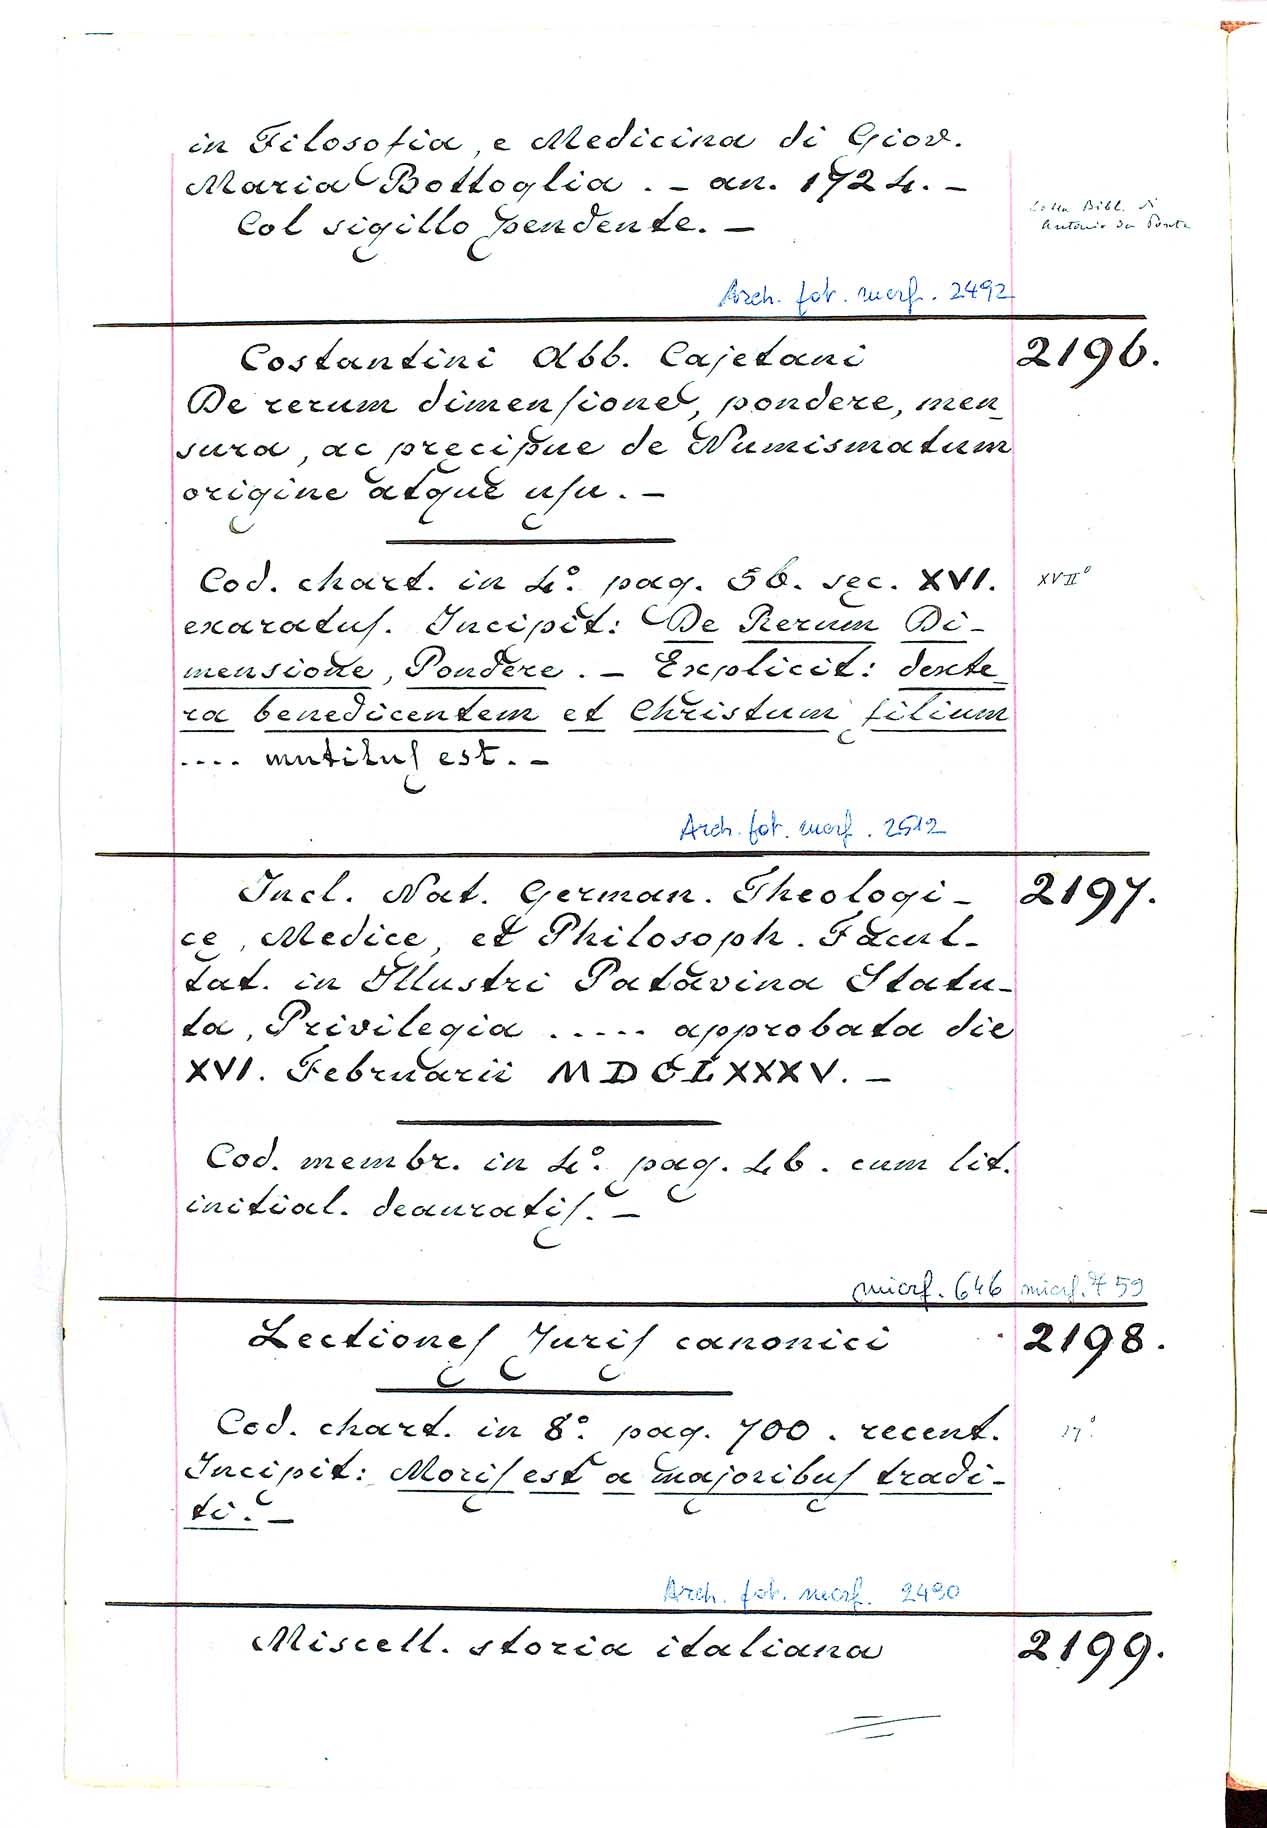 in Filosofia, e Medicina di Giov.
Maria Bottoglia. – an. 1724. –
Col sigillo pendente. –
Bibl. di
Antonio da Ponte
Arch. fot. micrf. 2492
Costantini Abb. Cajetani
2196.
De rerum dimensione, pondere, men_
sura, ac precipue de Numismatum
origine atque usu. –
Cod. chart. in 4.° pag. 56. sec. XVI.
XVII°
exaratus. Incipit: De Rerum Di-
mensione, Pondere. – Explicit: dexte_
ra benedicentem et Christum filium
.... mutilus est. –
Arch. fot. micrf. 2512
Incl. Nat. German. Theologi-
2197.
ce, Medice, et Philosoph. Facul-
tat. in Illustri Patavina Statu-
ta, Privilegia ..... approbata die
XVI. Februarii MDCLXXXV. –
Cod. membr. in 4.° pag. 46. cum lit.
initial. deauratis. –
micrf. 646 micrf. 759
Lectiones Juris canonici
2198.
Cod. chart. in 8.° pag. 700. recent.
17°.
Incipit: Moris est a majoribus tradi-
ti. –
Arch. fot. micrf. 2490
Miscell. storia italiana
2199.